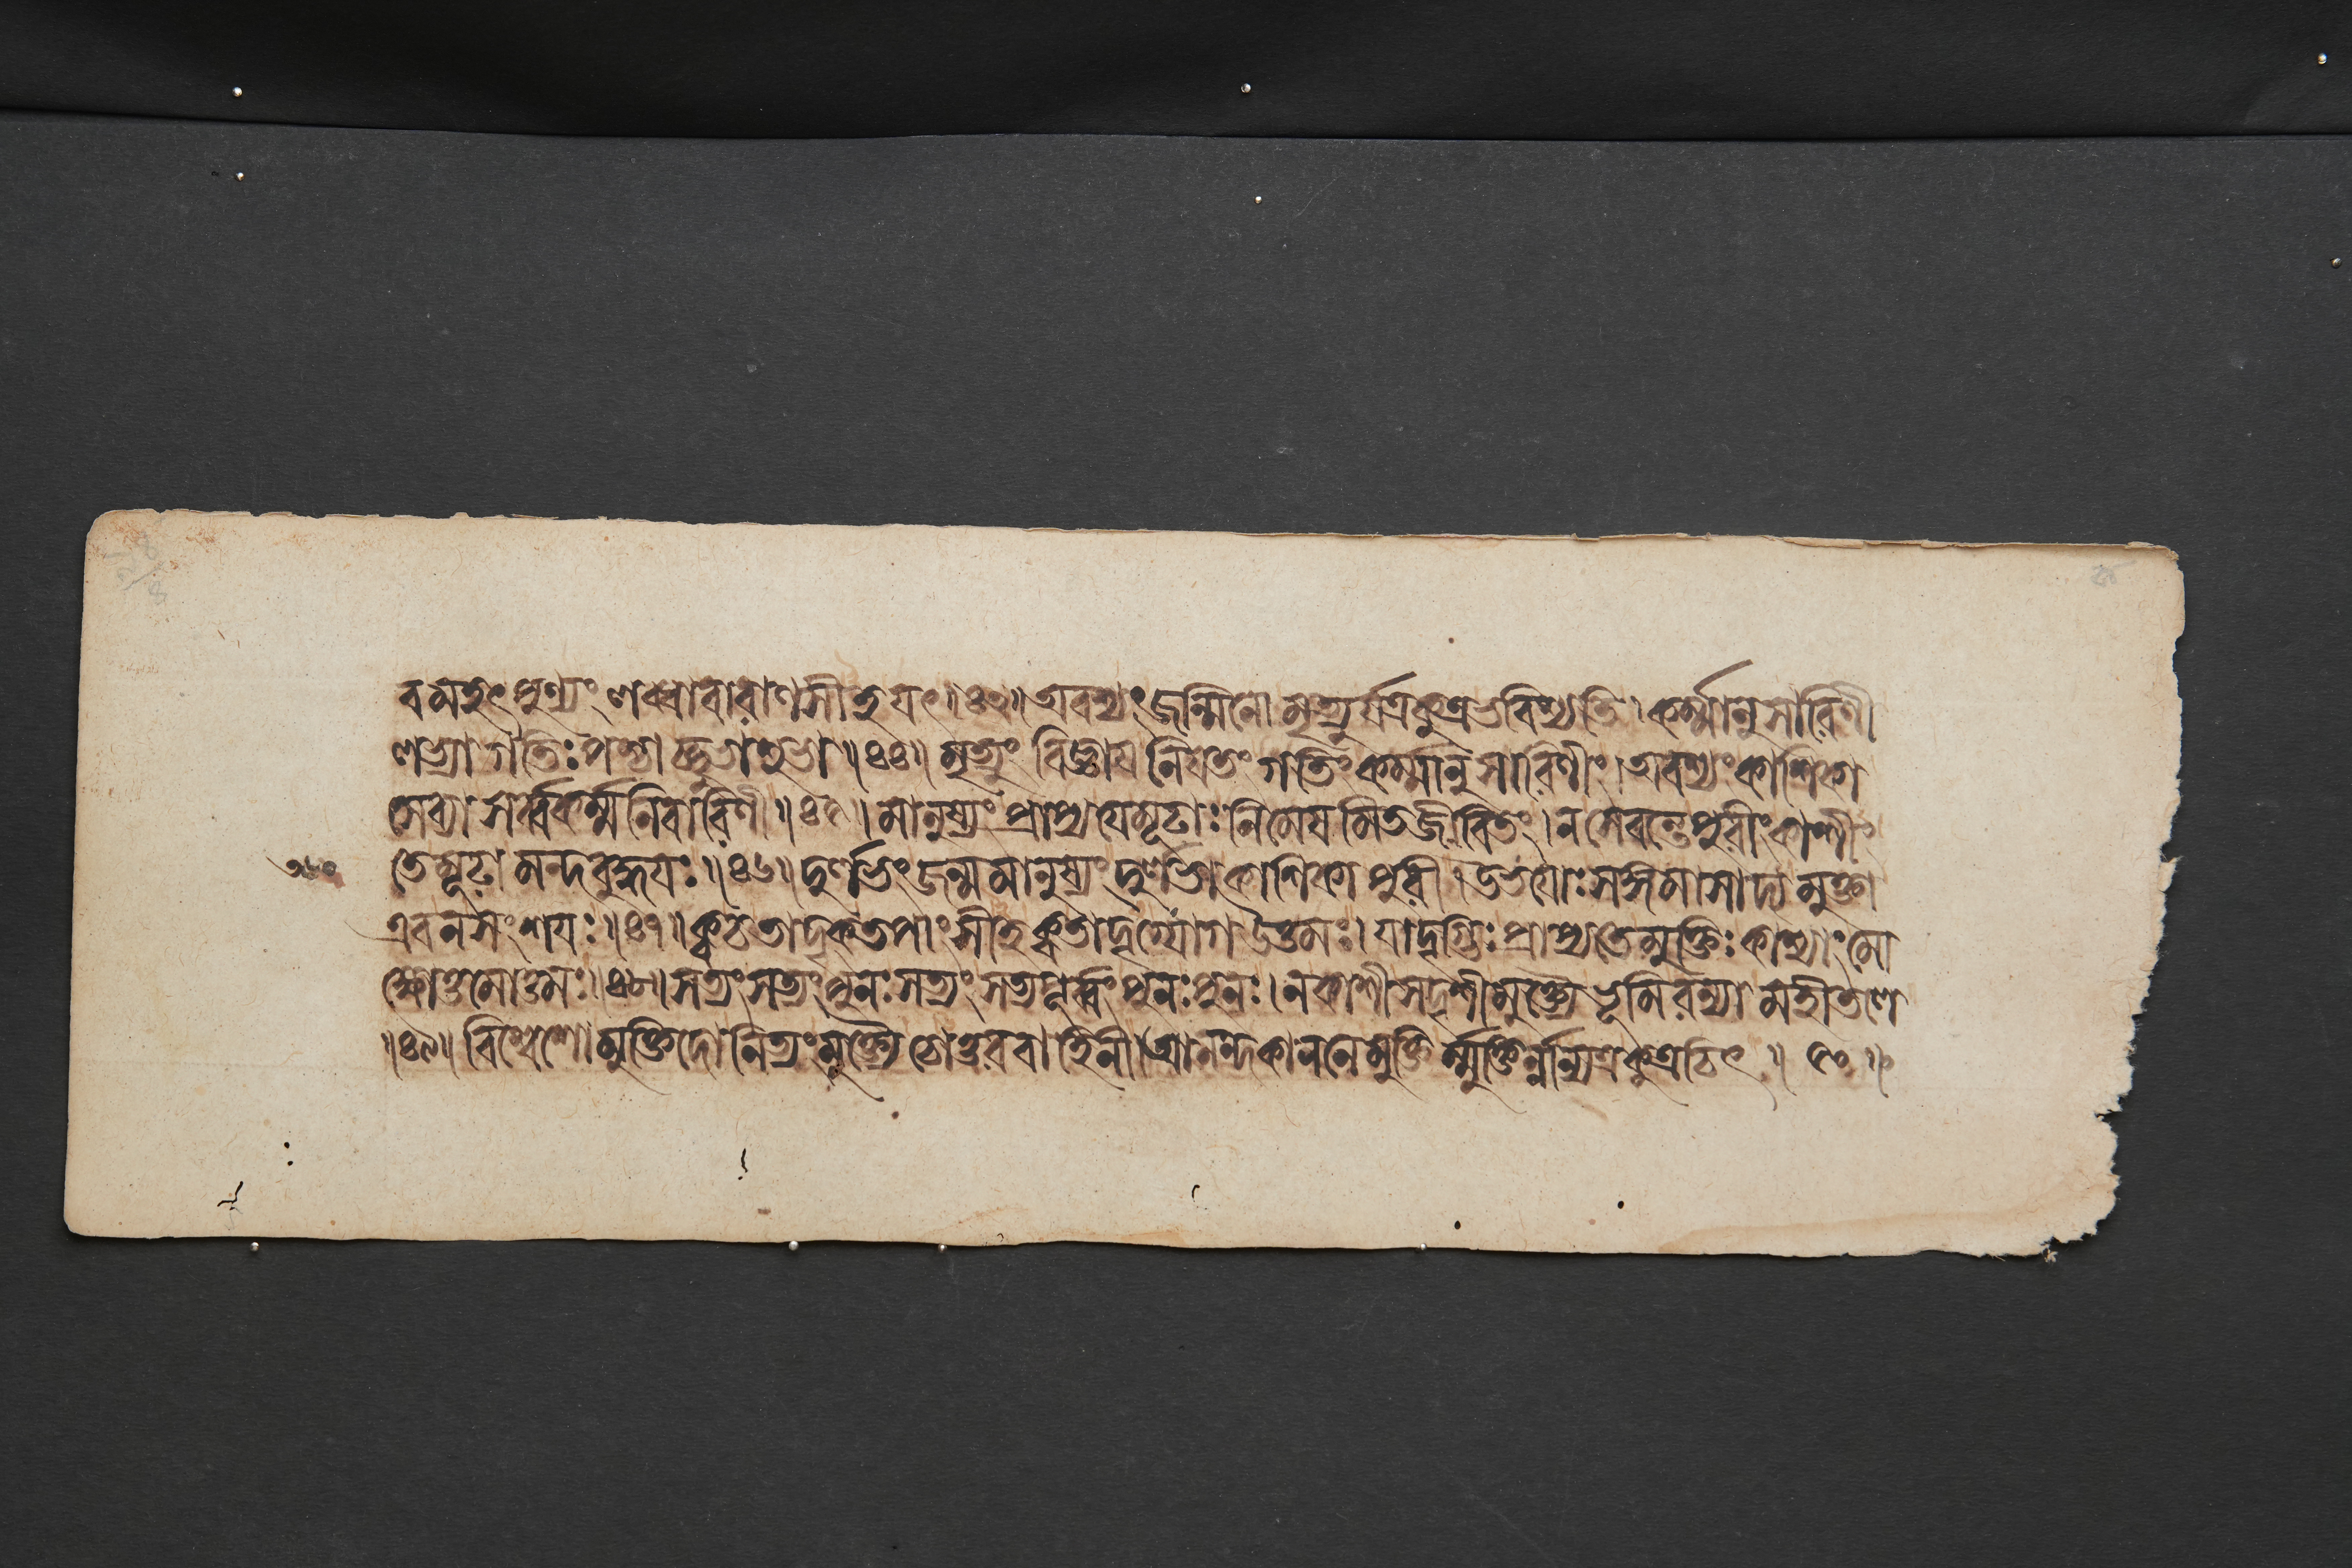 ব মহৎ পুণ্যং লব্ধ্বা বারাণসীতু যৎ ॥ ৪৩ ॥ অবশ্যং জন্মিনো মৃত্যুর্যত্র কুত্র ভবিষ্যতি । কর্ম্মানুসারিণী
লভ্যা গতিঃ পশ্চাচ্ছুভাশুভা ॥ ৪৪ ॥ মৃত্যুং বিজ্ঞায নিযতং গতিং কর্ম্মানুসারিণীং । অবশ্যং কাশিকা
সেব্যা সর্ব্বকর্ম্মনিবারিণী ॥ ৪৫ ॥ মানুষ্যং প্রাপ্য যে মূঢাঃ নিমেষমিতজীবিতং । ন সেবন্তে পুরীং কাশীং
তে মূঢা মন্দবুদ্ধযঃ ॥ ৪৬ ॥ দুর্লভং জন্ম মানুষ্যং দুর্লভা কাশিকা পুরী । উভযোঃ সঙ্গমাসাদ্য মুক্তা
এব ন সংশযঃ ॥ ৪৭ ॥ ক্ব চ তাদৃক্তপাংসীহ ক্ব তাদৃগ্যোগ উত্তমঃ । যাদৃগ্ভিঃ প্রাপ্যতে মুক্তিঃ কাশ্যাং মো
ক্ষোত্তমোত্তমঃ ॥ ৪৮ ॥ সত্যং সত্যং পুনঃ সত্যং সত্যপূর্ব্বং পুনঃ পুনঃ । ন কাশীসদৃশী মুক্ত্যৈ ভূমিরন্যা মহীতলে
॥ ৪৯ ॥ বিশ্বেশো মুক্তিদো নিত্যং মুক্ত্যৈ চোত্তরবাহিনী । আনন্দকাননে মুক্তির্ম্মুক্তির্ন্নান্যত্র কুত্রচিৎ ॥ ৫০ ॥